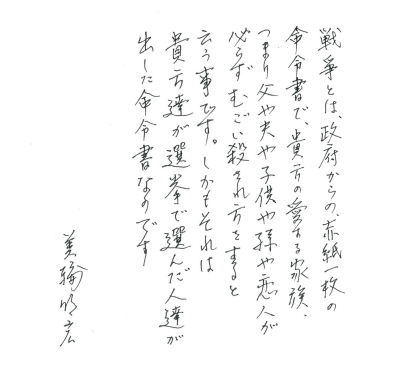 戦争とは、政府からの、赤紙一枚の
命令書で、貴方の愛する家族、
つまり父や夫や子供や孫や恋人が
必らずむごい殺され方をすると
云う事です。しかもそれは
貴方達が選挙で選んだ人達が
出した命令書なのです
美輪明宏